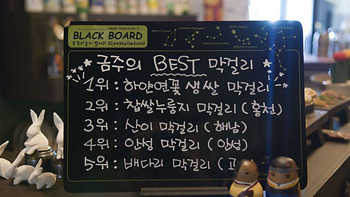 BLACK BOARD
★ 금주의 BEST 막걸리 ★
1위 : 하얀연꽃 생쌀 막걸리
2위 : 찹쌀누룽지 막걸리 (홍천)
3위 : 산이 막걸리 (해남)
4위 : 안성 막걸리 (안성)
5위 : 배다리 막걸리 (고